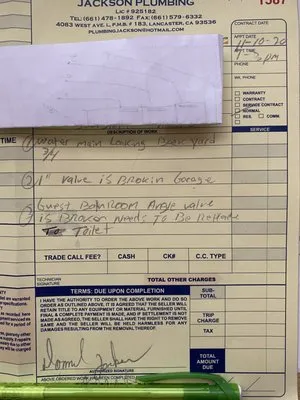 JACKSON PLUMBING
LIC # 925182
TEL:(661) 478-1892 FAX:(661) 579-6332
4083 WEST AVE. L, P.M.B. # 183, LANCASTER, CA 93536
PLUMBINGJACKSON@HOTMAIL.COM
1387
CONTRACT DATE
APPT DATE
11-10-20
APPT TIME
PM
WK. PHONE
WARRANTY
CONTRACT
SERVICE CONTRACT
NORMAL
RES.
COMM
DESCRIPTION OF WORK
SERVICE
TIME
① Water main Leaking Back yard
3/4
② 1" valve is Brokin Garage
Guest Bathroom Angle valve
③ is Broken Needs To Be Replace
Toilet
TRADE CALL FEE?
CASH
CK#
C.C. TYPE
TECHNICIAN
SIGNATURE
TOTAL OTHER CHARGES
TERMS: DUE UPON COMPLETION
I HAVE THE AUTHORITY TO ORDER THE ABOVE WORK AND DO SO
ORDER AS OUTLINED ABOVE. IT IS AGREED THAT THE SELLER WILL
RETAIN TITLE TO ANY EQUIPMENT OR MATERIAL FURNISHED UNTIL
FINAL & COMPLETE PAYMENT IS MADE, AND IF SETTLEMENT IS NOT
MADE AS AGREED, THE SELLER SHALL HAVE THE RIGHT TO REMOVE
SAME AND THE SELLER WILL BE HELD HARMLESS FOR ANY
DAMAGES RESULTING FROM THE REMOVAL THEREOF.
SUB-
TOTAL
TRIP CHARGE
TAX
TOTAL
AMOUNT
DUE
AUTHORIZED SIGNATURE